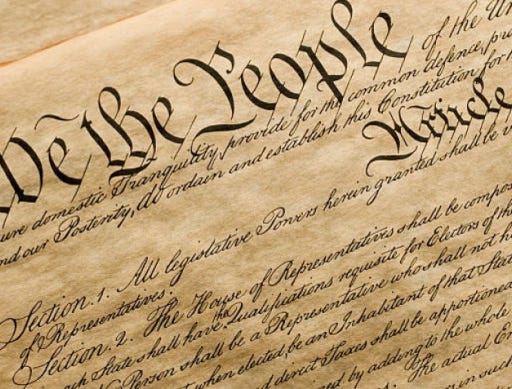 We the People of the Un
ure domestic Tranquility, provide for the common defence, pro
nd our Posterity, do ordain and establish this Constitution for t
Article
Section. 1. All legislative Powers herein granted shall be v
of Representatives.
Section. 2. The House of Representatives shall be compos
ach State shall have the Qualifications requisite for Electors of the
No Person shall be a Representative who shall not h
t when elected, be an Inhabitant of that State
and direct Taxes shall be apportioned
ed by adding to the whole
The actual En
in such